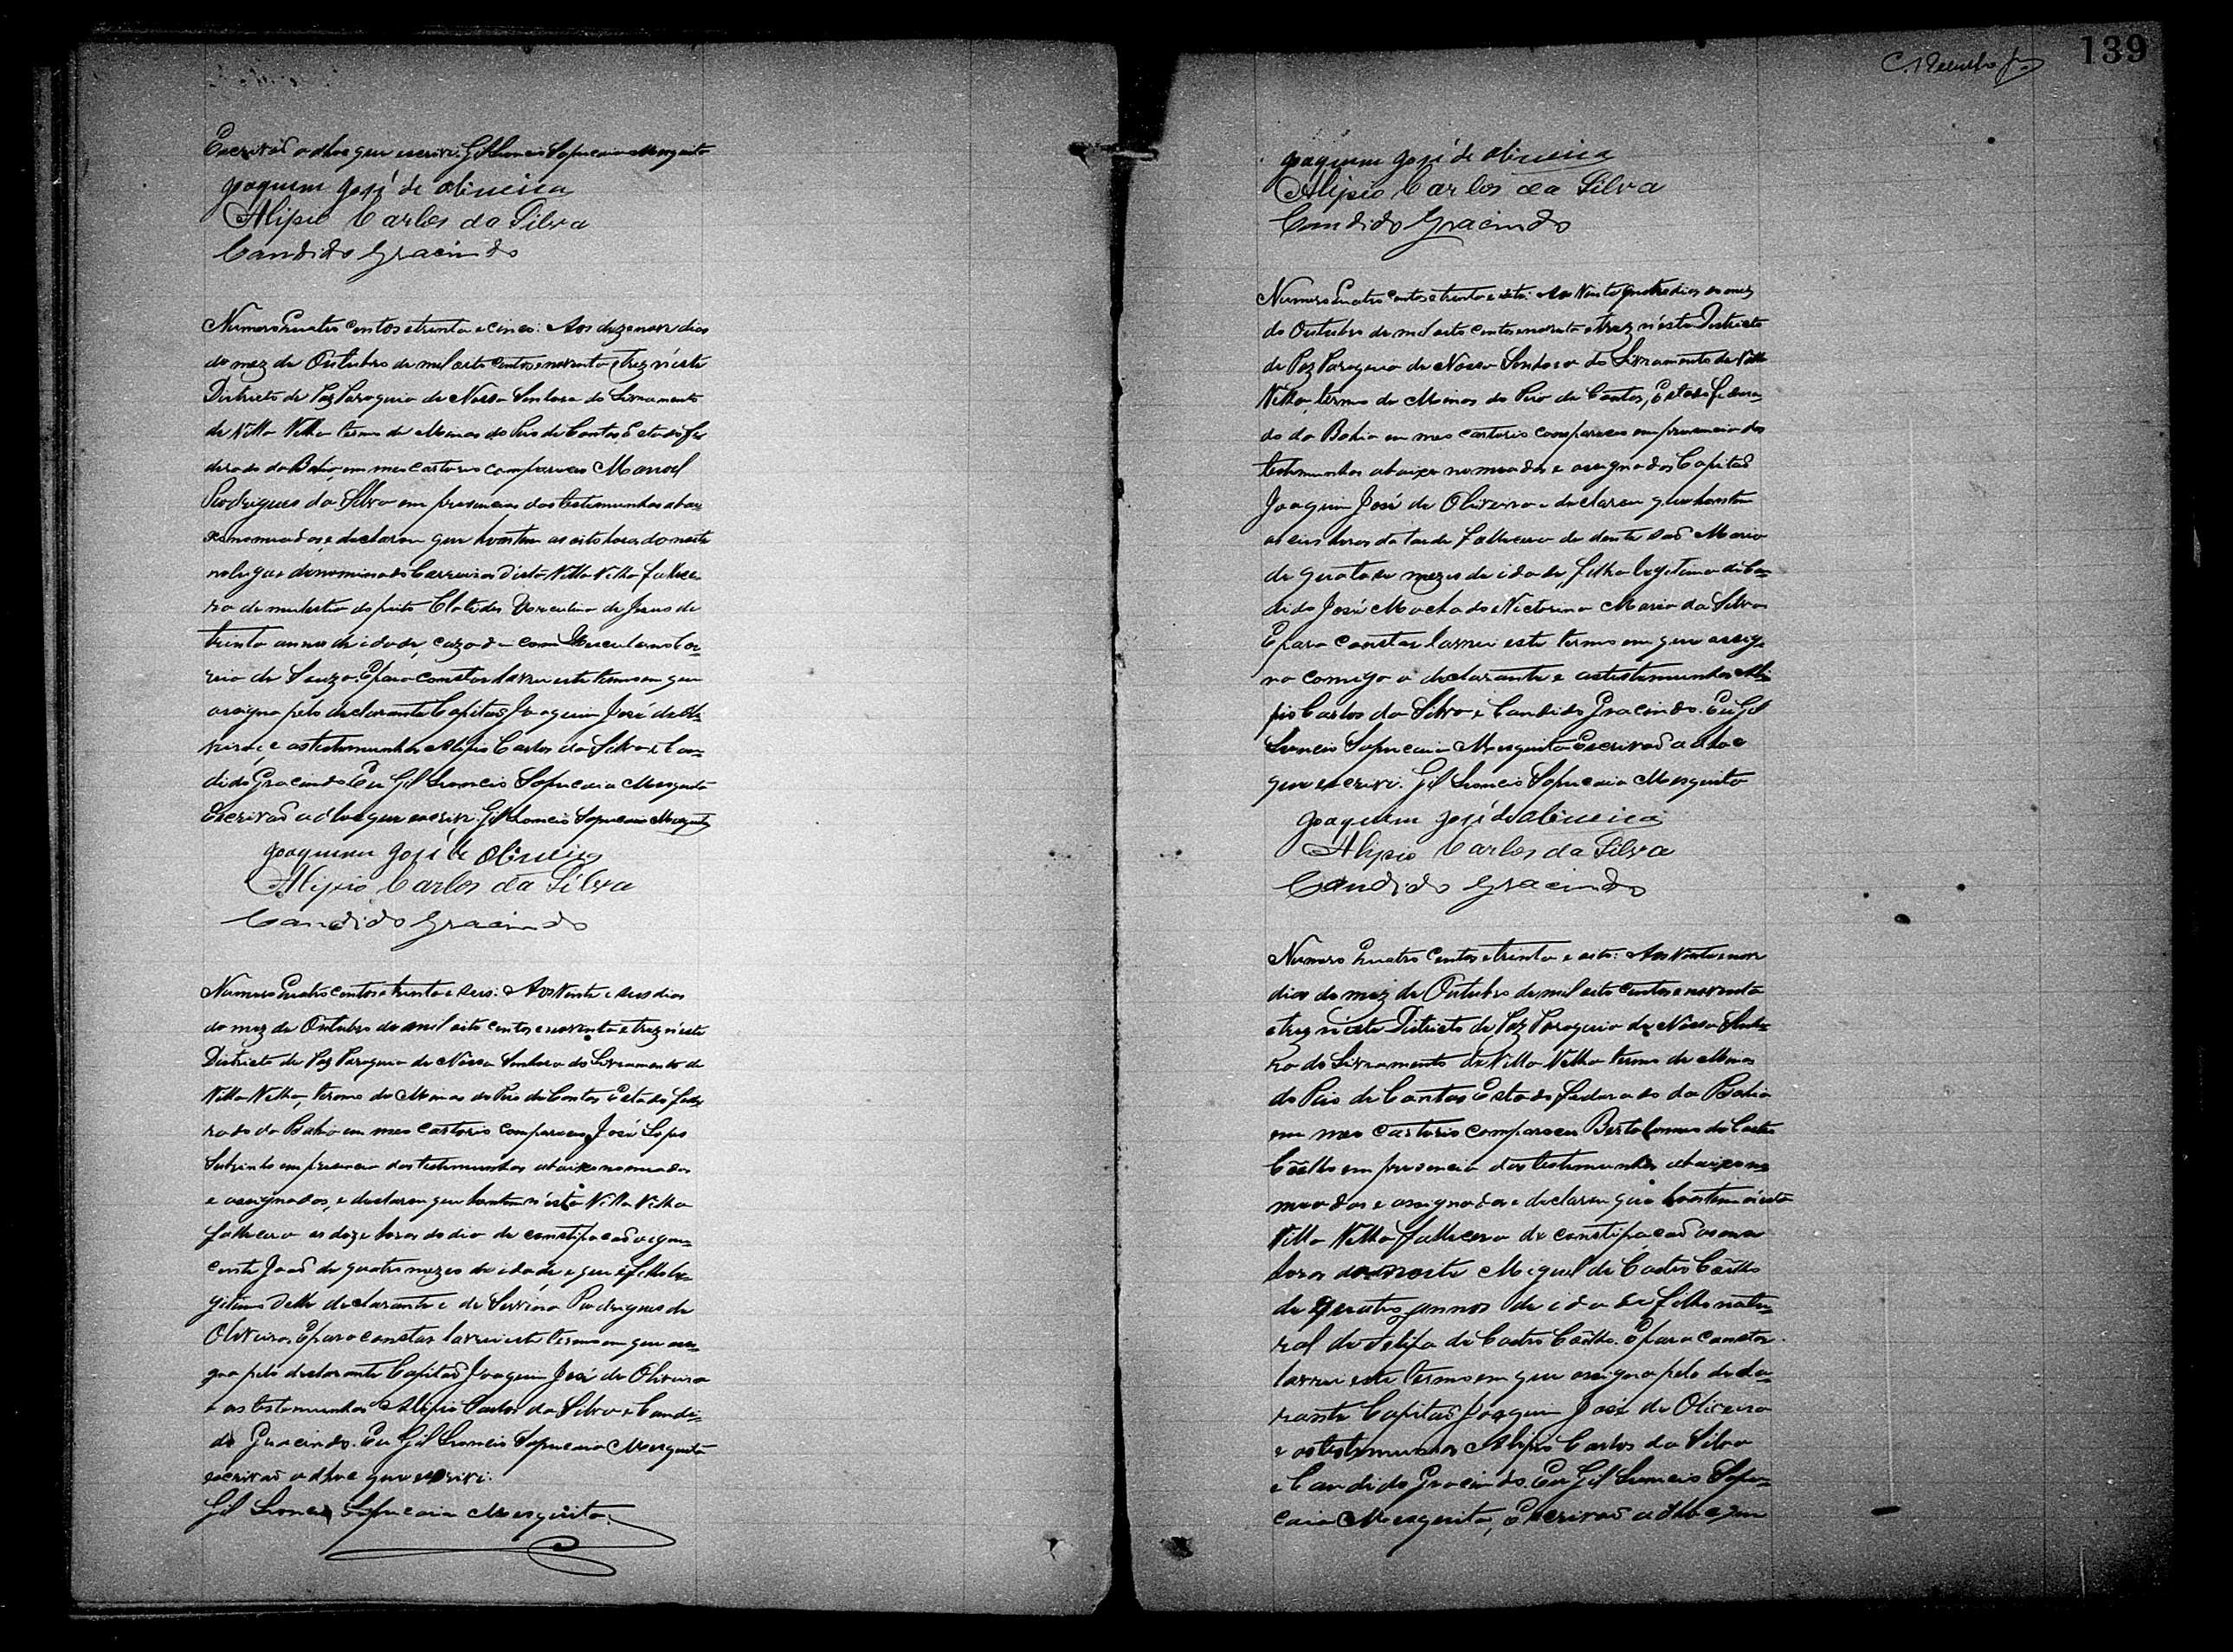 Escrivaõ adhoc que escrivi. Gil Leoncio Sapucaia Mesquita
Joaquim José de Oliveira
Alipio Carlos da Silva
Candido Gracindo
Numero Quatro centos e trinta e cinco: Aos dezenove dias
do mez de Outubro de mil oito centos e noventa e trez n'este
Districto de Paz Paroquia de Nossa Senhora do Livramento
de Villa Velha termo de Minas do Rio de Contas Estado fe
derado da Bahia, em meu cartorio compareceo Manoel
Rodrigues da Silva em presencia das testemunhas abai-
xo nomeadas, e declarou que hontem as oito horas da noite
no lugar denominado d'esta Villa Velha fallece-
ra de mulestia do peito Clotildes de Jesus de
trinta annos de idade, cazada com
de Souza. E para constar lavrei este termo em que
assigna pelo declarante Capitaõ Joaquim José de Oli-
veira, e as testemunhas Alipio Carlos da Silva e Can-
dido Gracindo. Eu Gil Leoncio Sapucaia Mesquita
Escrivaõ adhoc que escrivi. Gil Leoncio Sapucaia Mesquita
Joaquim José de Oliveira
Alipio Carlos da Silva
Candido Gracindo
Numero Quatro centos e trinta e seis: Aos vinte e seis dias
do mez de Outubro de mil oito centos e noventa e trez n'este
Districto de Paz Paroquia de Nossa Senhora do Livramento de
Villa Velha, termo de Minas do Rio de Contas Estado fede
rado da Bahia em meu cartorio compareceu José Lopes
Sobrinho em presencia das testemunhas abaixo nomeadas
e assignados, e declarou que hontem n'esta Villa Velha
fallecera as doze horas do dia de constipação o igno-
cente Joaõ de quatro mezes de idade e que é filho le-
gitimo delle declarante e de Rodrigues de
Oliveira. E para constar lavrei este termo em que assi-
gna pelo declarante Capitaõ Joaquim José de Oliveira
e as testemunhas Alipio Carlos da Silva e Candi-
do Gracindo. Eu Gil Leoncio Sapucaia Mesquita
escrivaõ adhoc que escrivi.
Gil Leoncio Sapucaia Mesquita
139
Joaquim José de Oliveira
Alipio Carlos da Silva
Candido Gracindo
Numero Quatro centos e trinta e sete: Aos vinte dias do mez
de Outubro de mil oito centos e noventa e trez n'este Districto
de Paz Paroquia de Nossa Senhora do Livramento de Villa
Velha, termo de Minas do Rio de Contas, Estado federa-
do da Bahia em meu cartorio compareceu em presencia das
testemunhas abaixo nomeadas e assignados Capitaõ
Joaquim José de Oliveira e declarou que hontem
as seis horas da tarde fallecera de dentisaõ Maria
de quatorze mezes de idade, filha legitima de Can-
dido José Machado e Victorina Maria da Silva
E para constar lavrei este termo em que assig-
na comigo o declarante e as testemunhas Ali-
pio Carlos da Silva e Candido Gracindo. Eu Gil
Leoncio Sapucaia Mesquita Escrivaõ adhoc
que escrivi. Gil Leoncio Sapucaia Mesquita
Joaquim José de Oliveira
Alipio Carlos da Silva
Candido Gracindo
Numero Quatro centos e trinta e oito: Aos vinte e nove
dias do mez de Outubro de mil oito centos e noventa
e trez n'este Districto de Paz Paroquia de Nossa Senho-
ra do Livramento de Villa Velha termo de Minas
do Rio de Contas Estado federado da Bahia
em meu cartorio compareceu Bertolomeu de Castro
Coêlho em presencia das testemunhas abaixo no-
meados e assignados e declarou que hontem n'esta
Villa Velha fallecera de constipacaõ as onze
horas da noite Miguel de Castro Coêlho
de quatro annos de idade filho natu-
ral de Felipa de Castro Coêlho. E para constar
lavrei este termo em que assigna pelo decla-
rante Capitaõ Joaquim José de Oliveira
e as testemunhas Alipio Carlos da Silva
e Candido Gracindo. Eu Gil Leoncio Sapu-
caia Mesquita, Escrivaõ adhoc que